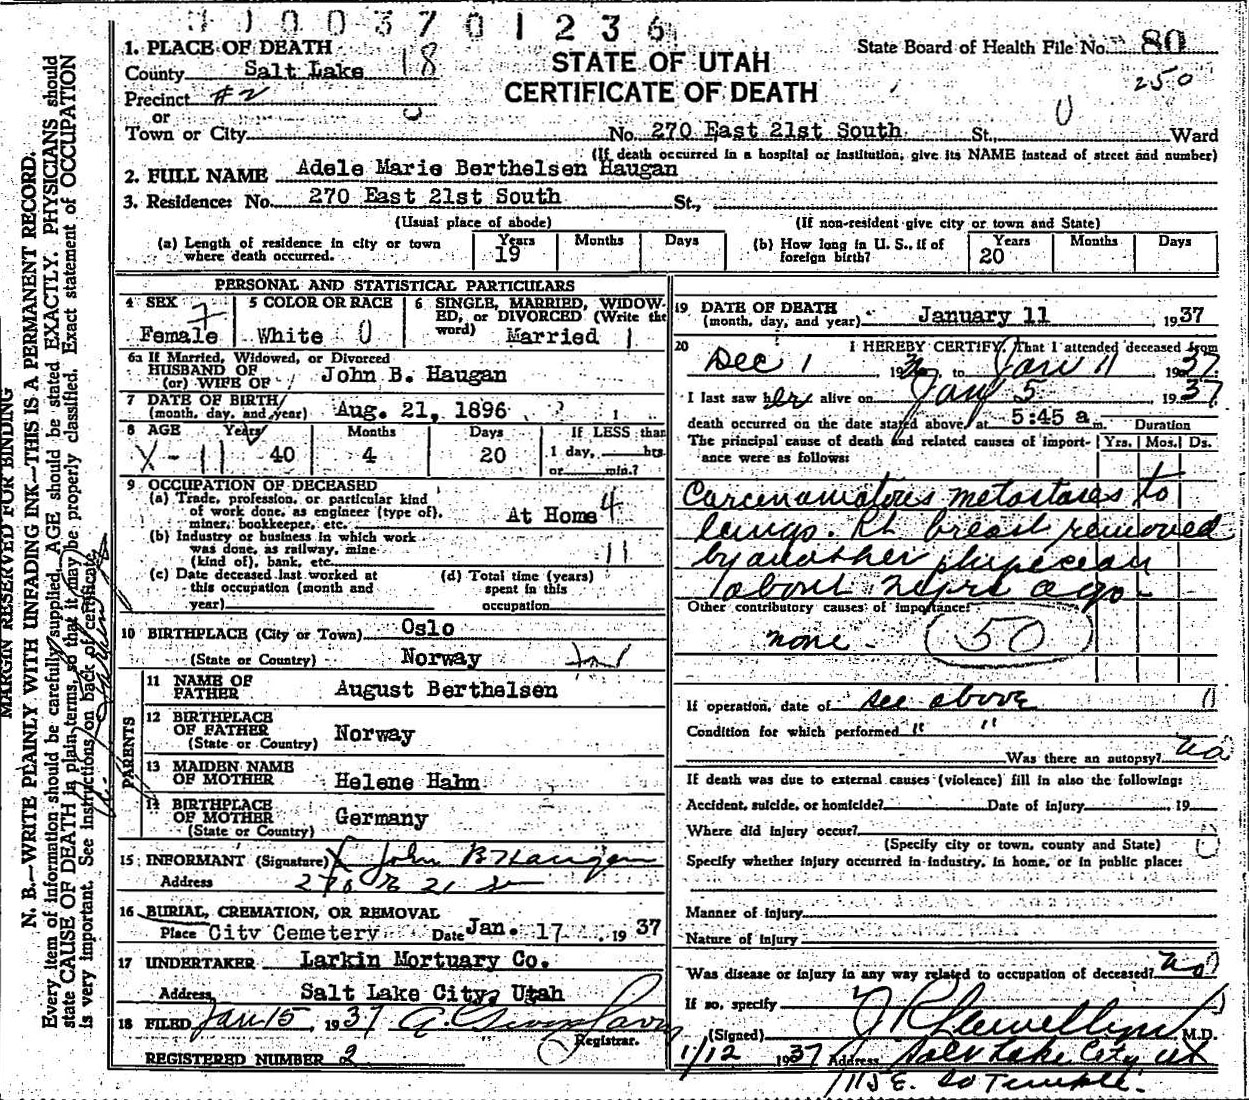 3 7 0 1 2 3 6
1. PLACE OF DEATH
County Salt Lake 18
Precinct #2
or
Town or City
STATE OF UTAH
CERTIFICATE OF DEATH
State Board of Health File No. 80
250
No. 270 East 21st South St. Ward
(If death occurred in a hospital or institution, give its NAME instead of street and number)
2. FULL NAME Adele Marie Berthelsen Haugan
3. Residence: No. 270 East 21st South St.,
(Usual place of abode) (If non-resident give city or town and State)
(a) Length of residence in city or town where death occurred. Years 19 Months Days
(b) How long in U. S., if of foreign birth? Years 20 Months Days
PERSONAL AND STATISTICAL PARTICULARS
4 SEX Female
5 COLOR OR RACE White 0
6 SINGLE, MARRIED, WIDOW-
ED, or DIVORCED (Write the
word) Married 1
6a If Married, Widowed, or Divorced
HUSBAND OF
(or) WIFE OF John B. Haugan
7 DATE OF BIRTH
(month, day, and year) Aug. 21, 1896
8 AGE Years 40 Months 4 Days 20 If LESS than
1 day, hrs
or min.?
9 OCCUPATION OF DECEASED
(a) Trade, profession, or particular kind
of work done, as engineer (type of),
miner, bookkeeper, etc. At Home 4
(b) Industry or business in which work
was done, as railway, mine
(kind of), bank, etc. 11
(c) Date deceased last worked at
this occupation (month and
year)
(d) Total time (years)
spent in this
occupation
10 BIRTHPLACE (City or Town) Oslo
(State or Country) Norway
PARENTS
11 NAME OF
FATHER August Berthelsen
12 BIRTHPLACE
OF FATHER
(State or Country) Norway
13 MAIDEN NAME
OF MOTHER Helene Hahn
14 BIRTHPLACE
OF MOTHER
(State or Country) Germany
15 INFORMANT (Signature) X John B Haugan
Address 270 E 21 So
16 BURIAL, CREMATION, OR REMOVAL
Place City Cemetery Date Jan. 17 1937
17 UNDERTAKER Larkin Mortuary Co.
Address Salt Lake City, Utah
18 FILED Jan 15, 1937
Registrar.
REGISTERED NUMBER 2
19 DATE OF DEATH
(month, day, and year) January 11 1937
20 I HEREBY CERTIFY, That I attended deceased from
Dec 1 1936, to Jan 11 1937
I last saw her alive on Jan 5 1937
death occurred on the date stated above, at 5:45 a m. Duration
The principal cause of death and related causes of import-
ance were as follows: Yrs. Mos. Ds.
Carcinamatous metastases to
lungs. Rt breast removed
by another physician
about 2 yrs ago-
Other contributory causes of importance:
none - 50
If operation, date of see above
Condition for which performed " "
Was there an autopsy? no
If death was due to external causes (violence) fill in also the following:
Accident, suicide, or homicide? Date of injury 19
Where did injury occur?
(Specify city or town, county and State)
Specify whether injury occurred in industry, in home, or in public place:
Manner of injury
Nature of injury
Was disease or injury in any way related to occupation of deceased? no
If so, specify
(Signed) J P Llewellyn M.D.
1/12 1937 Address Salt Lake City Ut
1115 E. So Temple.
MARGIN RESERVED FOR BINDING
N. B.—WRITE PLAINLY WITH UNFADING INK—THIS IS A PERMANENT RECORD.
Every item of information should be carefully supplied. AGE should be stated EXACTLY. PHYSICIANS should
state CAUSE OF DEATH in plain terms, so that it may be properly classified. Exact statement of OCCUPATION
is very important. See instructions on back of certificate.